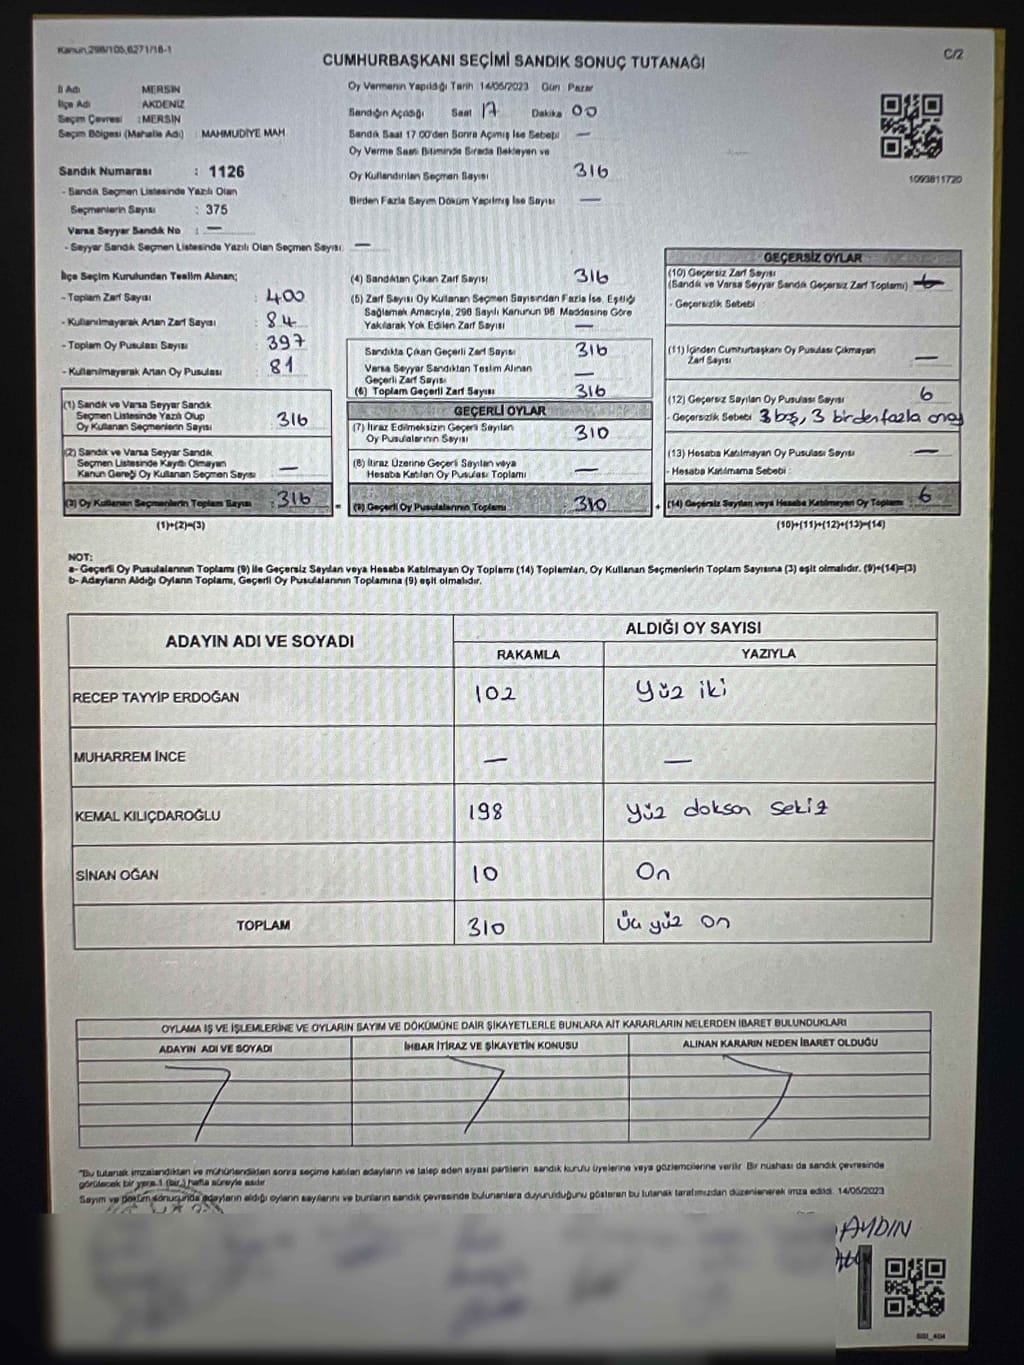 Kanun,298/105,6271/18-1
C/2
CUMHURBAŞKANI SEÇİMİ SANDIK SONUÇ TUTANAĞI
İl Adı MERSİN
İlçe Adı AKDENİZ
Seçim Çevresi : MERSİN
Seçim Bölgesi (Mahalle Adı) : MAHMUDİYE MAH.
Sandık Numarası : 1126
- Sandık Seçmen Listesinde Yazılı Olan
Seçmenlerin Sayısı : 375
Varsa Seyyar Sandık No : —
- Seyyar Sandık Seçmen Listesinde Yazılı Olan Seçmen Sayısı: —
Oy Vermenin Yapıldığı Tarih 14/05/2023 Gün Pazar
Sandığın Açıldığı Saat 17 Dakika 00
Sandık Saat 17.00'den Sonra Açılmış İse Sebebi —
Oy Verme Saati Bitiminde Sırada Bekleyen ve
Oy Kullandırılan Seçmen Sayısı 316
Birden Fazla Sayım Döküm Yapılmış İse Sayısı —
1093811720
İlçe Seçim Kurulundan Teslim Alınan;
- Toplam Zarf Sayısı : 400
- Kullanılmayarak Artan Zarf Sayısı : 84
- Toplam Oy Pusulası Sayısı : 397
- Kullanılmayarak Artan Oy Pusulası : 81
(1) Sandık ve Varsa Seyyar Sandık
Seçmen Listesinde Yazılı Olup
Oy Kullanan Seçmenlerin Sayısı : 316
(2) Sandık ve Varsa Seyyar Sandık
Seçmen Listesinde Kayıtlı Olmayan
Kanun Gereği Oy Kullanan Seçmen Sayısı : —
(3) Oy Kullanan Seçmenlerin Toplam Sayısı : 316
(1)+(2)=(3)
(4) Sandıktan Çıkan Zarf Sayısı 316
(5) Zarf Sayısı Oy Kullanan Seçmen Sayısından Fazla İse, Eşitliği
Sağlamak Amacıyla, 298 Sayılı Kanunun 98. Maddesine Göre
Yakılarak Yok Edilen Zarf Sayısı —
Sandıkta Çıkan Geçerli Zarf Sayısı 316
Varsa Seyyar Sandıktan Teslim Alınan
Geçerli Zarf Sayısı —
(6) Toplam Geçerli Zarf Sayısı 316
GEÇERLİ OYLAR
(7) İtiraz Edilmeksizin Geçerli Sayılan
Oy Pusulalarının Sayısı 310
(8) İtiraz Üzerine Geçerli Sayılan veya
Hesaba Katılan Oy Pusulası Toplamı —
= (9) Geçerli Oy Pusulalarının Toplamı : 310
GEÇERSİZ OYLAR
(10) Geçersiz Zarf Sayısı
(Sandık ve Varsa Seyyar Sandık Geçersiz Zarf Toplamı)
- Geçersizlik Sebebi :
(11) İçinden Cumhurbaşkanı Oy Pusulası Çıkmayan
Zarf Sayısı —
(12) Geçersiz Sayılan Oy Pusulası Sayısı 6
- Geçersizlik Sebebi : 3 boş, 3 birden fazla onay
(13) Hesaba Katılmayan Oy Pusulası Sayısı —
- Hesaba Katılmama Sebebi :
+ (14) Geçersiz Sayılan veya Hesaba Katılmayan Oy Toplamı : 6
(10)+(11)+(12)+(13)=(14)
NOT:
a- Geçerli Oy Pusulalarının Toplamı (9) ile Geçersiz Sayılan veya Hesaba Katılmayan Oy Toplamı (14) Toplamları, Oy Kullanan Seçmenlerin Toplam Sayısına (3) eşit olmalıdır. (9)+(14)=(3)
b- Adayların Aldığı Oyların Toplamı, Geçerli Oy Pusulalarının Toplamına (9) eşit olmalıdır.
ADAYIN ADI VE SOYADI
ALDIĞI OY SAYISI
RAKAMLA YAZIYLA
RECEP TAYYİP ERDOĞAN 102 Yüz iki
MUHARREM İNCE — —
KEMAL KILIÇDAROĞLU 198 Yüz doksan sekiz
SİNAN OĞAN 10 On
TOPLAM 310 Üç yüz on
OYLAMA İŞ VE İŞLEMLERİNE VE OYLARIN SAYIM VE DÖKÜMÜNE DAİR ŞİKAYETLERLE BUNLARA AİT KARARLARIN NELERDEN İBARET BULUNDUKLARI
ADAYIN ADI VE SOYADI İHBAR İTİRAZ VE ŞİKAYETİN KONUSU ALINAN KARARIN NEDEN İBARET OLDUĞU
"Bu tutanak imzalandıktan ve mühürlendikten sonra seçime katılan adayların ve talep eden siyasi partilerin sandık kurulu üyelerine veya gözlemcilerine verilir. Bir nüshası da sandık çevresinde
görülecek bir yere 1 (bir) hafta süreyle asılır.
Sayım ve döküm sonucunda adayların aldığı oyların sayılarını ve bunların sandık çevresinde bulunanlara duyurulduğunu gösteren bu tutanak tarafımızdan düzenlenerek imza edildi. 14/05/2023
AYDIN